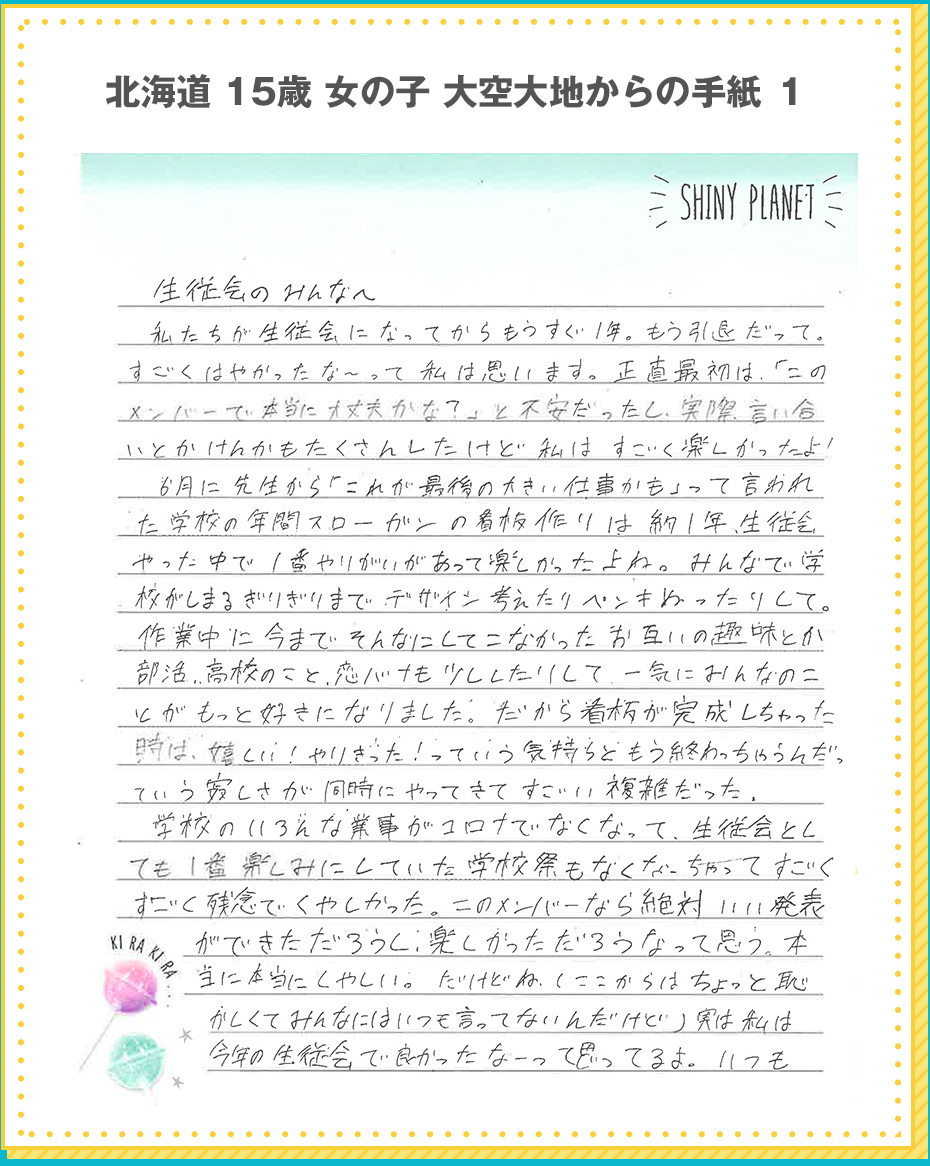 北海道 15歳 女の子 大空大地からの手紙 1
SHINY PLANET
生徒会のみんなへ
私たちが生徒会になってからもうすぐ1年。もう引退だって。
すごくはやかったな〜って私は思います。正直最初は、「この
メンバーで本当に大丈夫かな?」と不安だったし、実際、言い合
いとかけんかもたくさんしたけど私はすごく楽しかったよ!
6月に先生から「これが最後の大きい仕事かも」って言われ
た学校の年間スローガンの看板作りは約1年、生徒会
やった中で1番やりがいがあって楽しかったよね。みんなで学
校がしまるぎりぎりまでデザイン考えたりペンキぬったりして。
作業中に今までそんなにしてこなかったお互いの趣味とか
部活、高校のこと、恋バナも少ししたりして、一気にみんなのこ
とがもっと好きになりました。だから看板が完成しちゃった
時は、嬉しい!やりきった!っていう気持ちともう終わっちゃうんだっ
ていう寂しさが同時にやってきてすごい複雑だった。
学校のいろんな業事がコロナでなくなって、生徒会とし
ても1番楽しみにしていた学校祭もなくなっちゃってすごく
すごく残念でくやしかった。このメンバーなら絶対いい発表
ができただろうし、楽しかっただろうなって思う。本
当に本当にくやしい。だけどね、(ここからはちょっと恥
かしくてみんなにはいつも言ってないんだけど)実は私は
今年の生徒会で良かったなーって思ってるよ。いつも
KI RA KI RA...